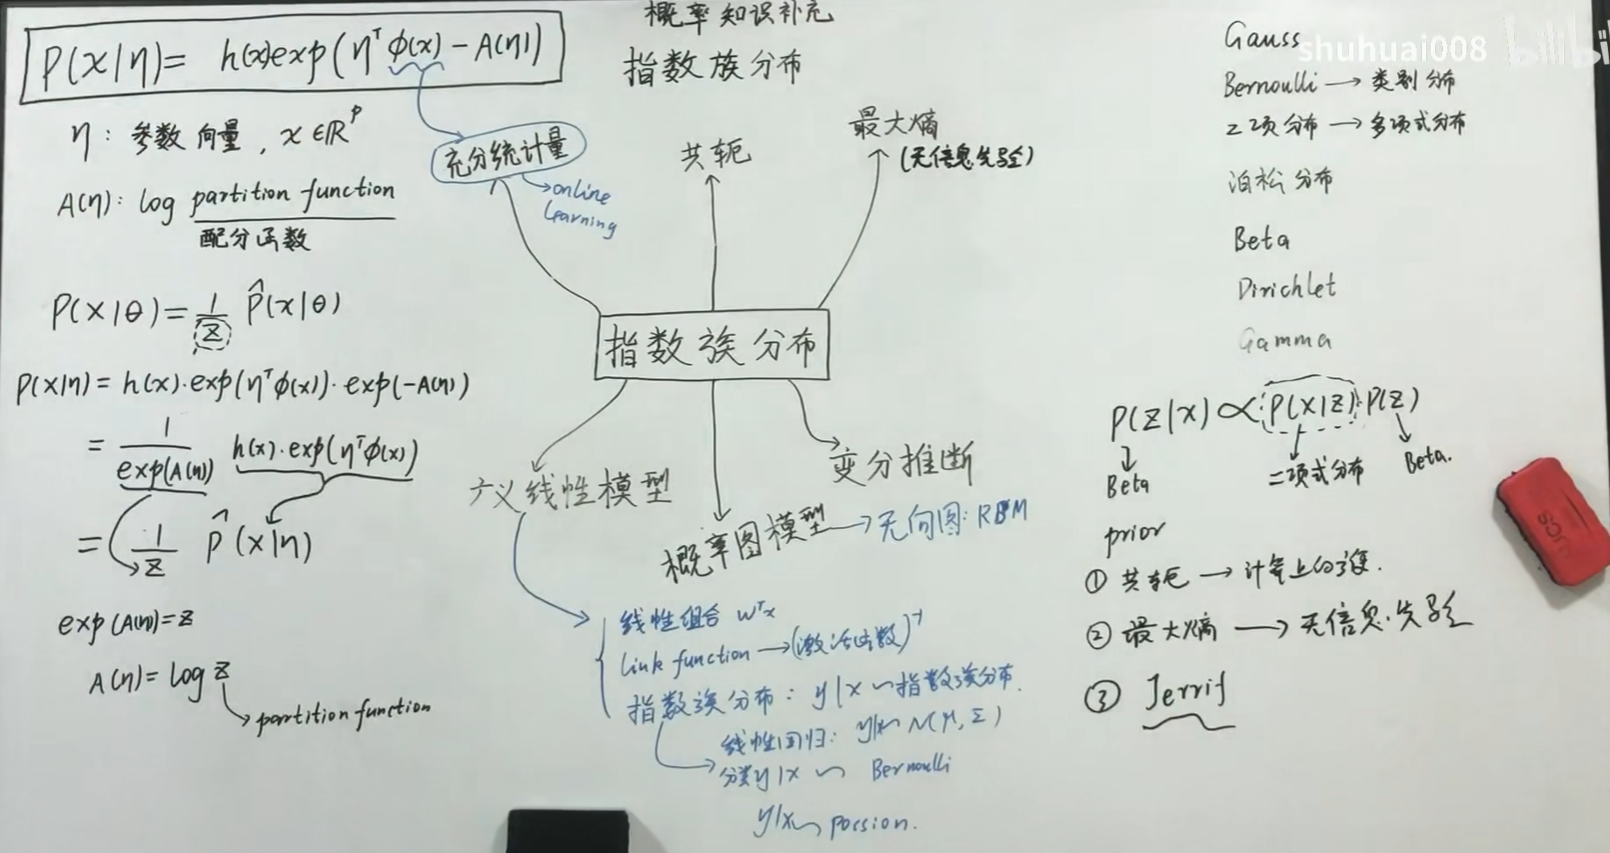 概率知识补充
指数族分布
P(x|η) = h(x)exp(ηᵀφ(x) - A(η))
η: 参数向量, x∈ℝᵖ
A(η): log partition function
配分函数
P(x|θ) = 1/z P̂(x|θ)
P(x|η) = h(x)·exp(ηᵀφ(x))·exp(-A(η))
= 1/exp(A(η)) h(x)·exp(ηᵀφ(x))
= 1/z P̂(x|η)
exp(A(η)) = z
A(η) = log z
→ partition function
充分统计量
→ online
learning
共轭
最大熵
(无信息先验)
指数族分布
广义线性模型
概率图模型 → 无向图: RBM
变分推断
线性组合 wᵀx
link function → (激活函数)⁻¹
指数族分布: y|x ~ 指数族分布.
线性回归: y|x ~ N(μ, Σ)
分类 y|x ~ Bernoulli
y|x ~ possion.
shuhuai008 bilibili
Gauss
Bernoulli → 类别分布
二项分布 → 多项式分布
泊松分布
Beta
Dirichlet
Gamma
P(z|x) ∝ P(x|z)·P(z)
Beta 二项式分布 Beta.
prior
① 共轭 → 计算上的方便.
② 最大熵 → 无信息先验
③ Jerrif